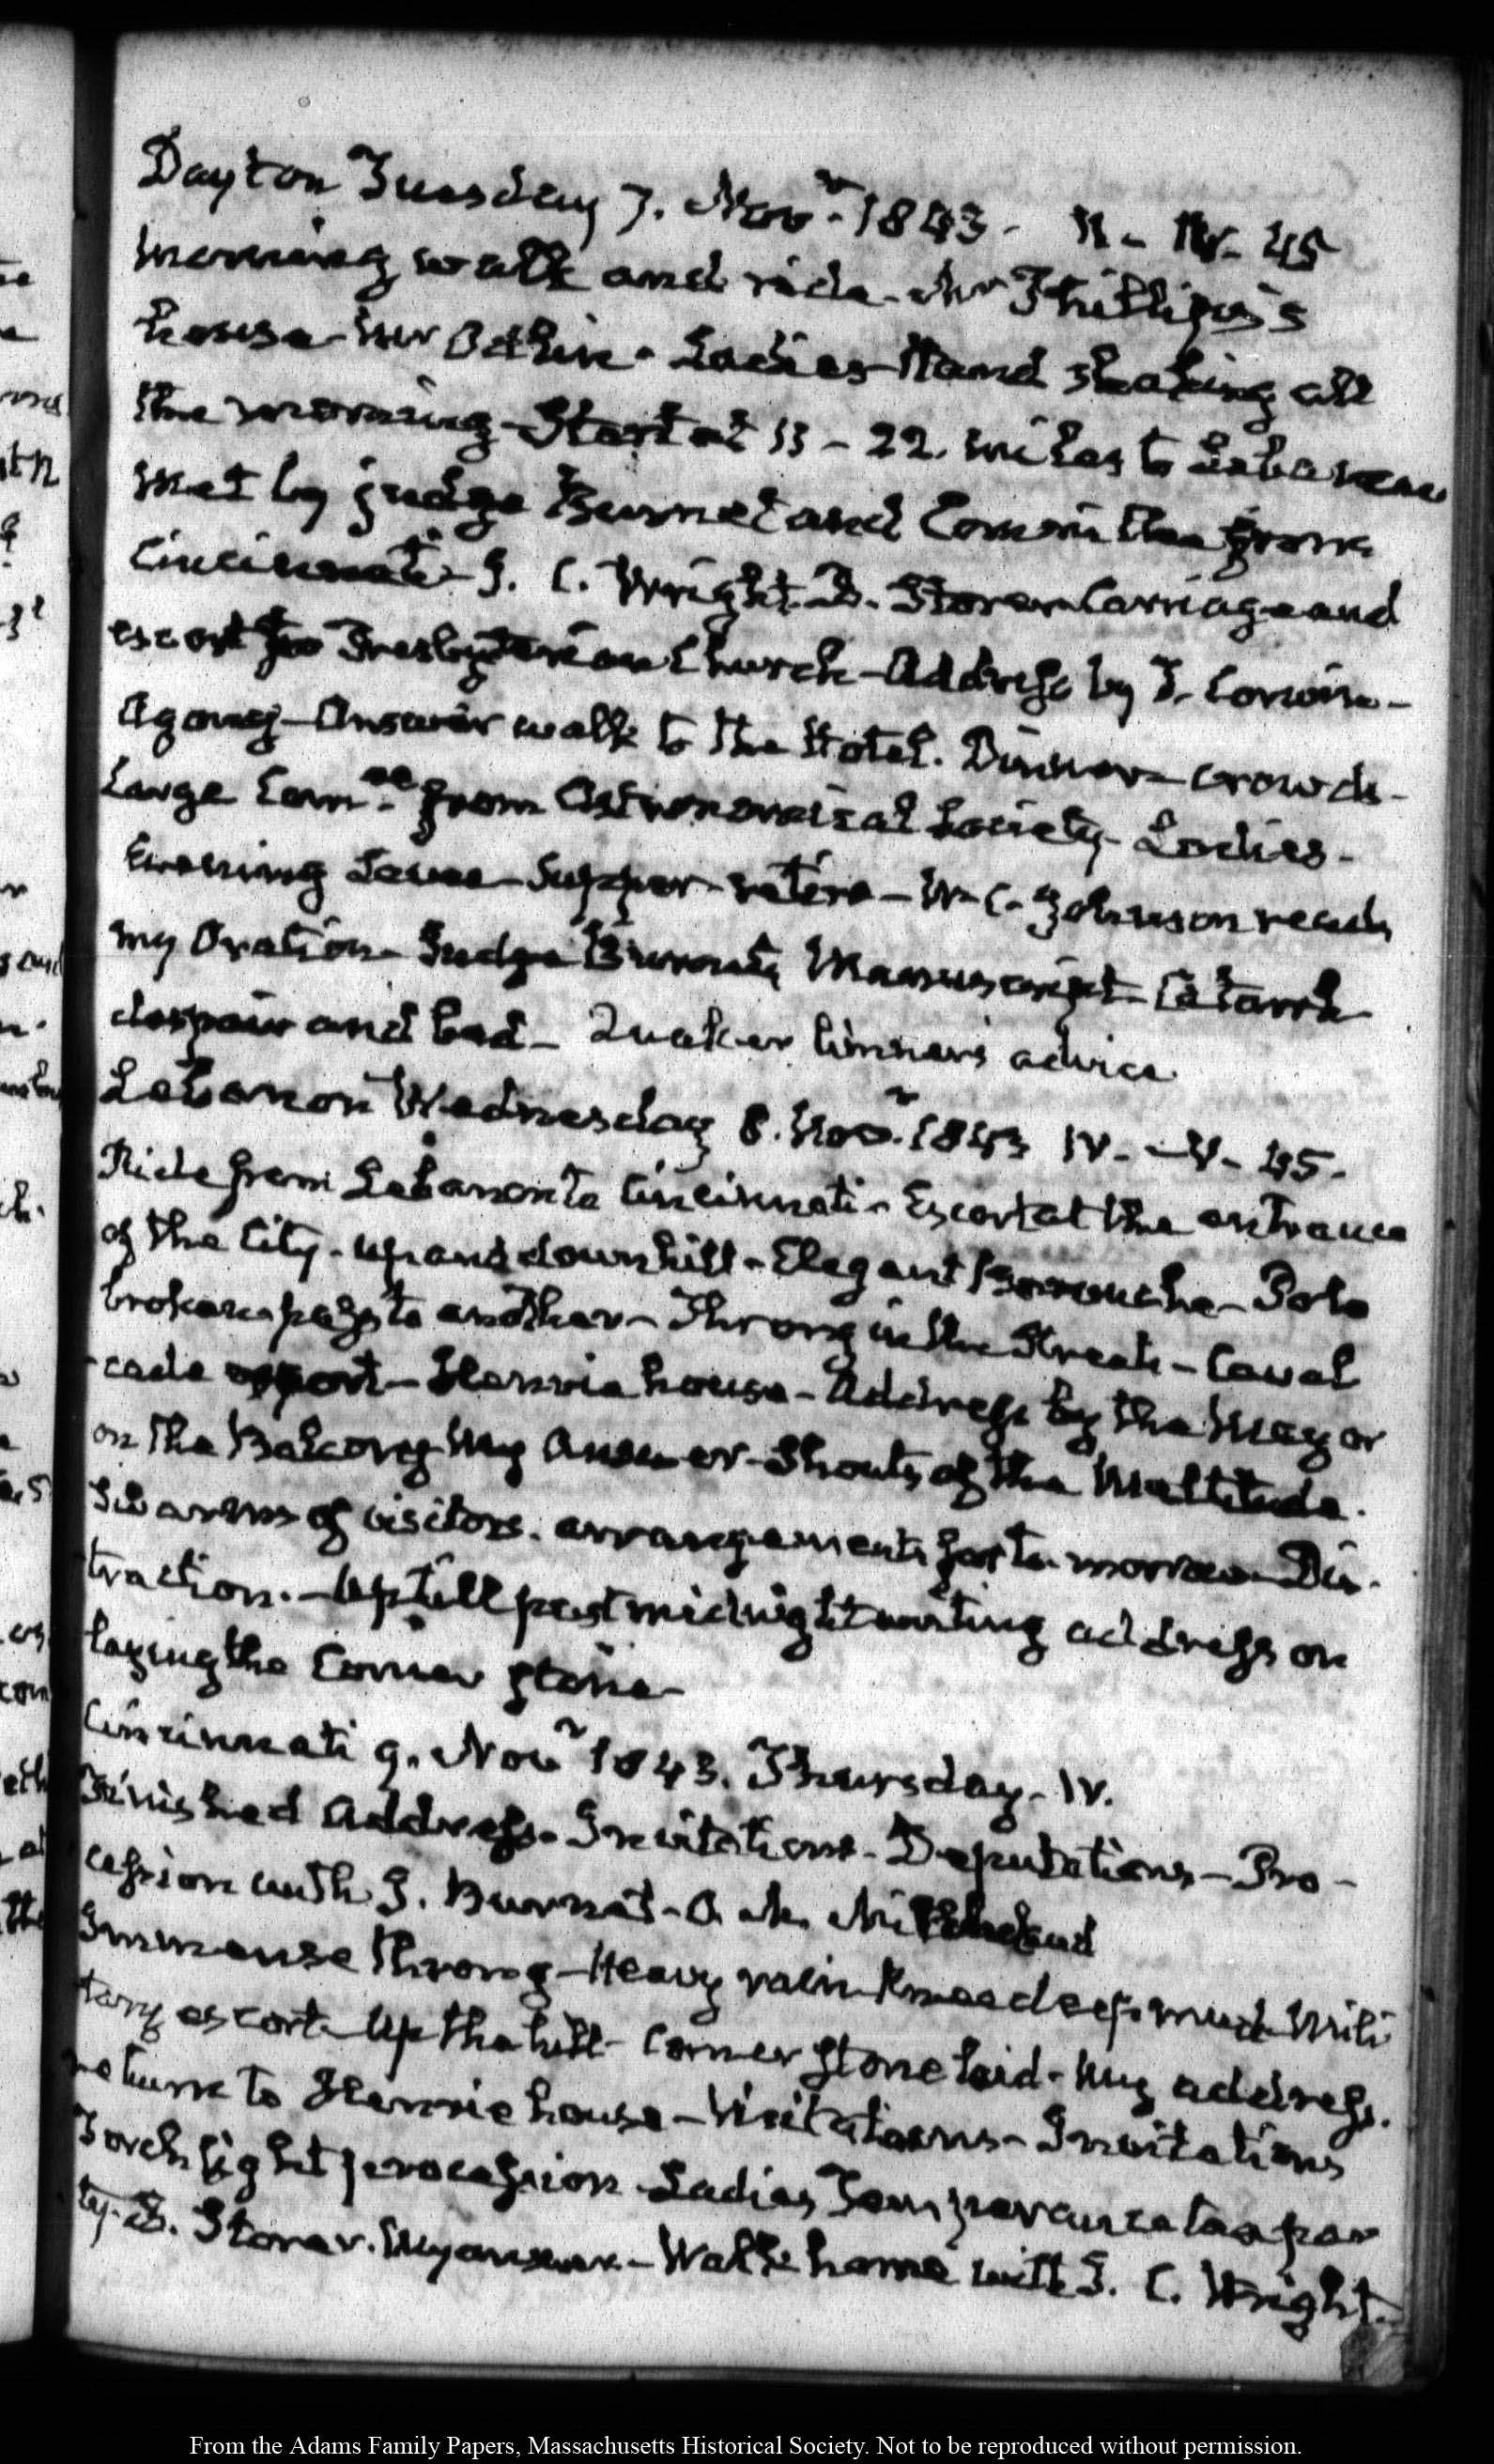 Dayton Tuesday 7. Novr. 1843 - II - IV. 45
morning walk and ride. Mr Phillips's
house - Mr Odlin. Ladies - Hand shaking all
the morning - Start at 11 - 22. miles to Lebanon
met by judge Burnet and Committee from
Cincinnati - J. C. Wright. B. Storer - Carriage and
escort to Presbyterian Church - Address by T. Corwin -
Agony - Answer walk to the Hotel. Dinner - crowds -
Large Comee. from Astronomical Society - Ladies -
Evening Levee - Supper - retire - W. C. Johnson reads
my Oration - Judge Burnet's Manuscript - Catarrh
despair and bed - Quaker limner's advice
Lebanon Wednesday 8. Novr. 1843 IV. - V - 45 -
Ride from Lebanon to Cincinnati - Escort at the entrance
of the City - up and down hill - Elegant Barouche - Pole
broken - pass to another - Throng in the Streets - Caval
cade - Henrie house - Address by the Mayor
on the Balcony - My Answer - Shouts of the Multitude.
Swarms of visitors. arrangements for to-morrow - Dis-
traction. - Up till past midnight writing address on
laying the Corner stone -
Cincinnati 9. Novr 1843. Thursday - IV.
Finished Address - Invitations - Deputations - Pro -
cession with J. Burnet - O. M. Mitchel and
Immense throng - Heavy rain - Knee deep mud - Mili
tary escort - Up the hill - Corner Stone laid - My address.
return to Henrie house - Visitations - Invitations
Torch light procession - Ladies Temperance tea par
ty. B. Storer. My answer - Walk home with J. C. Wright.
From the Adams Family Papers, Massachusetts Historical Society. Not to be reproduced without permission.